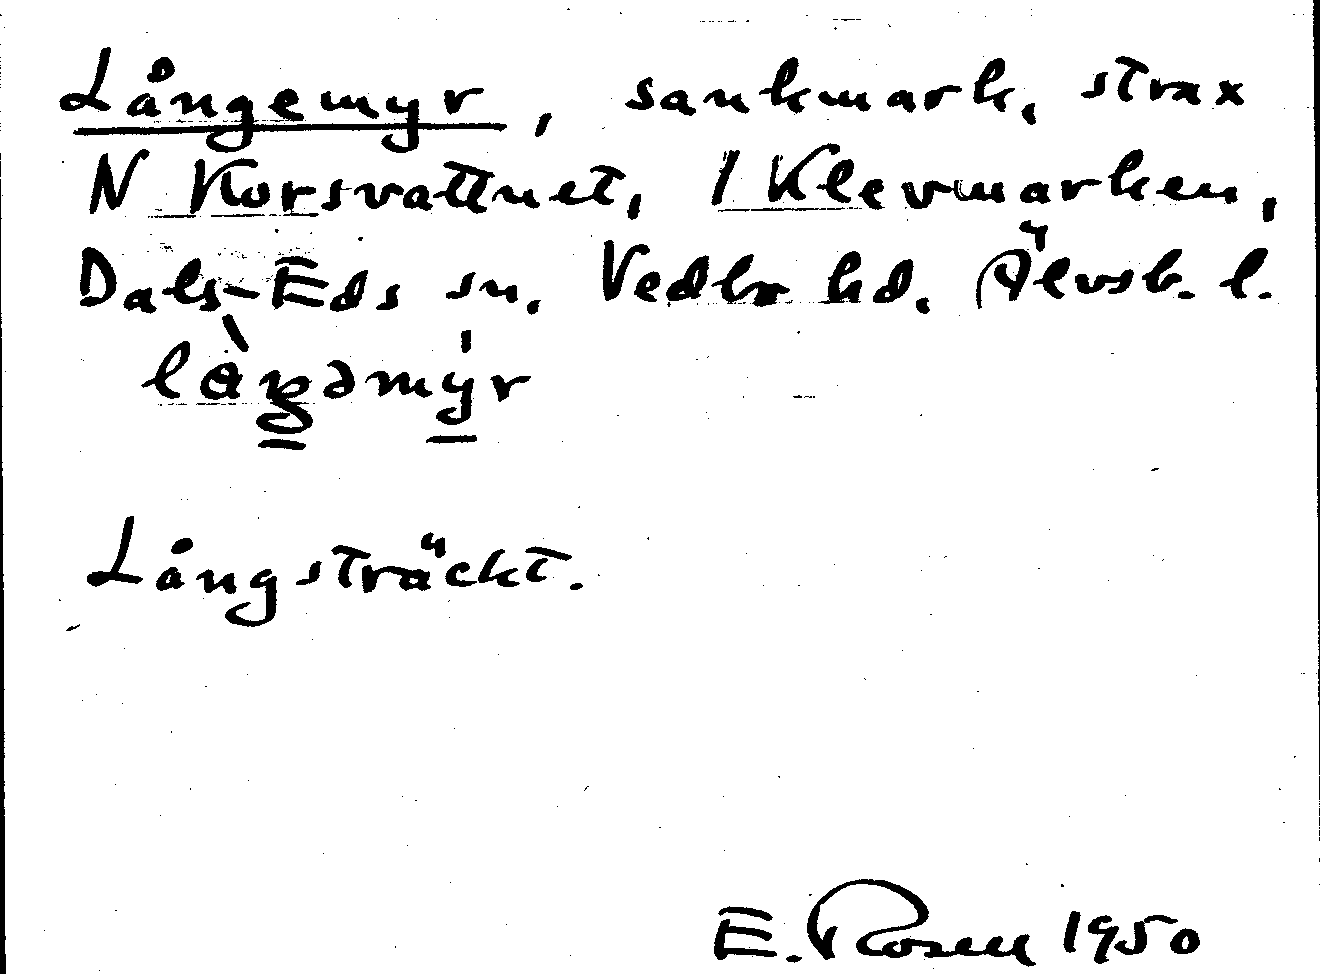 Långemyr, sankmark, strax
N Korsvattnet, 1 Klevmarken,
Dals-Eds sn. Vedbo hd. Älvsb. l.
Långsträckt.
E. Rosen 1950